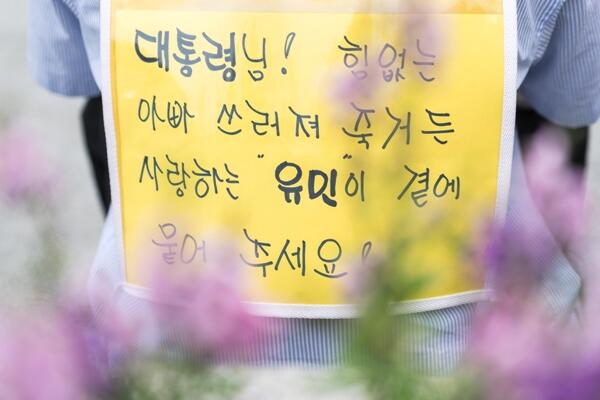 대통령님! 힘없는
아빠 쓰러져 죽거든
사랑하는 "유민"이 곁에
뭍어 주세요!